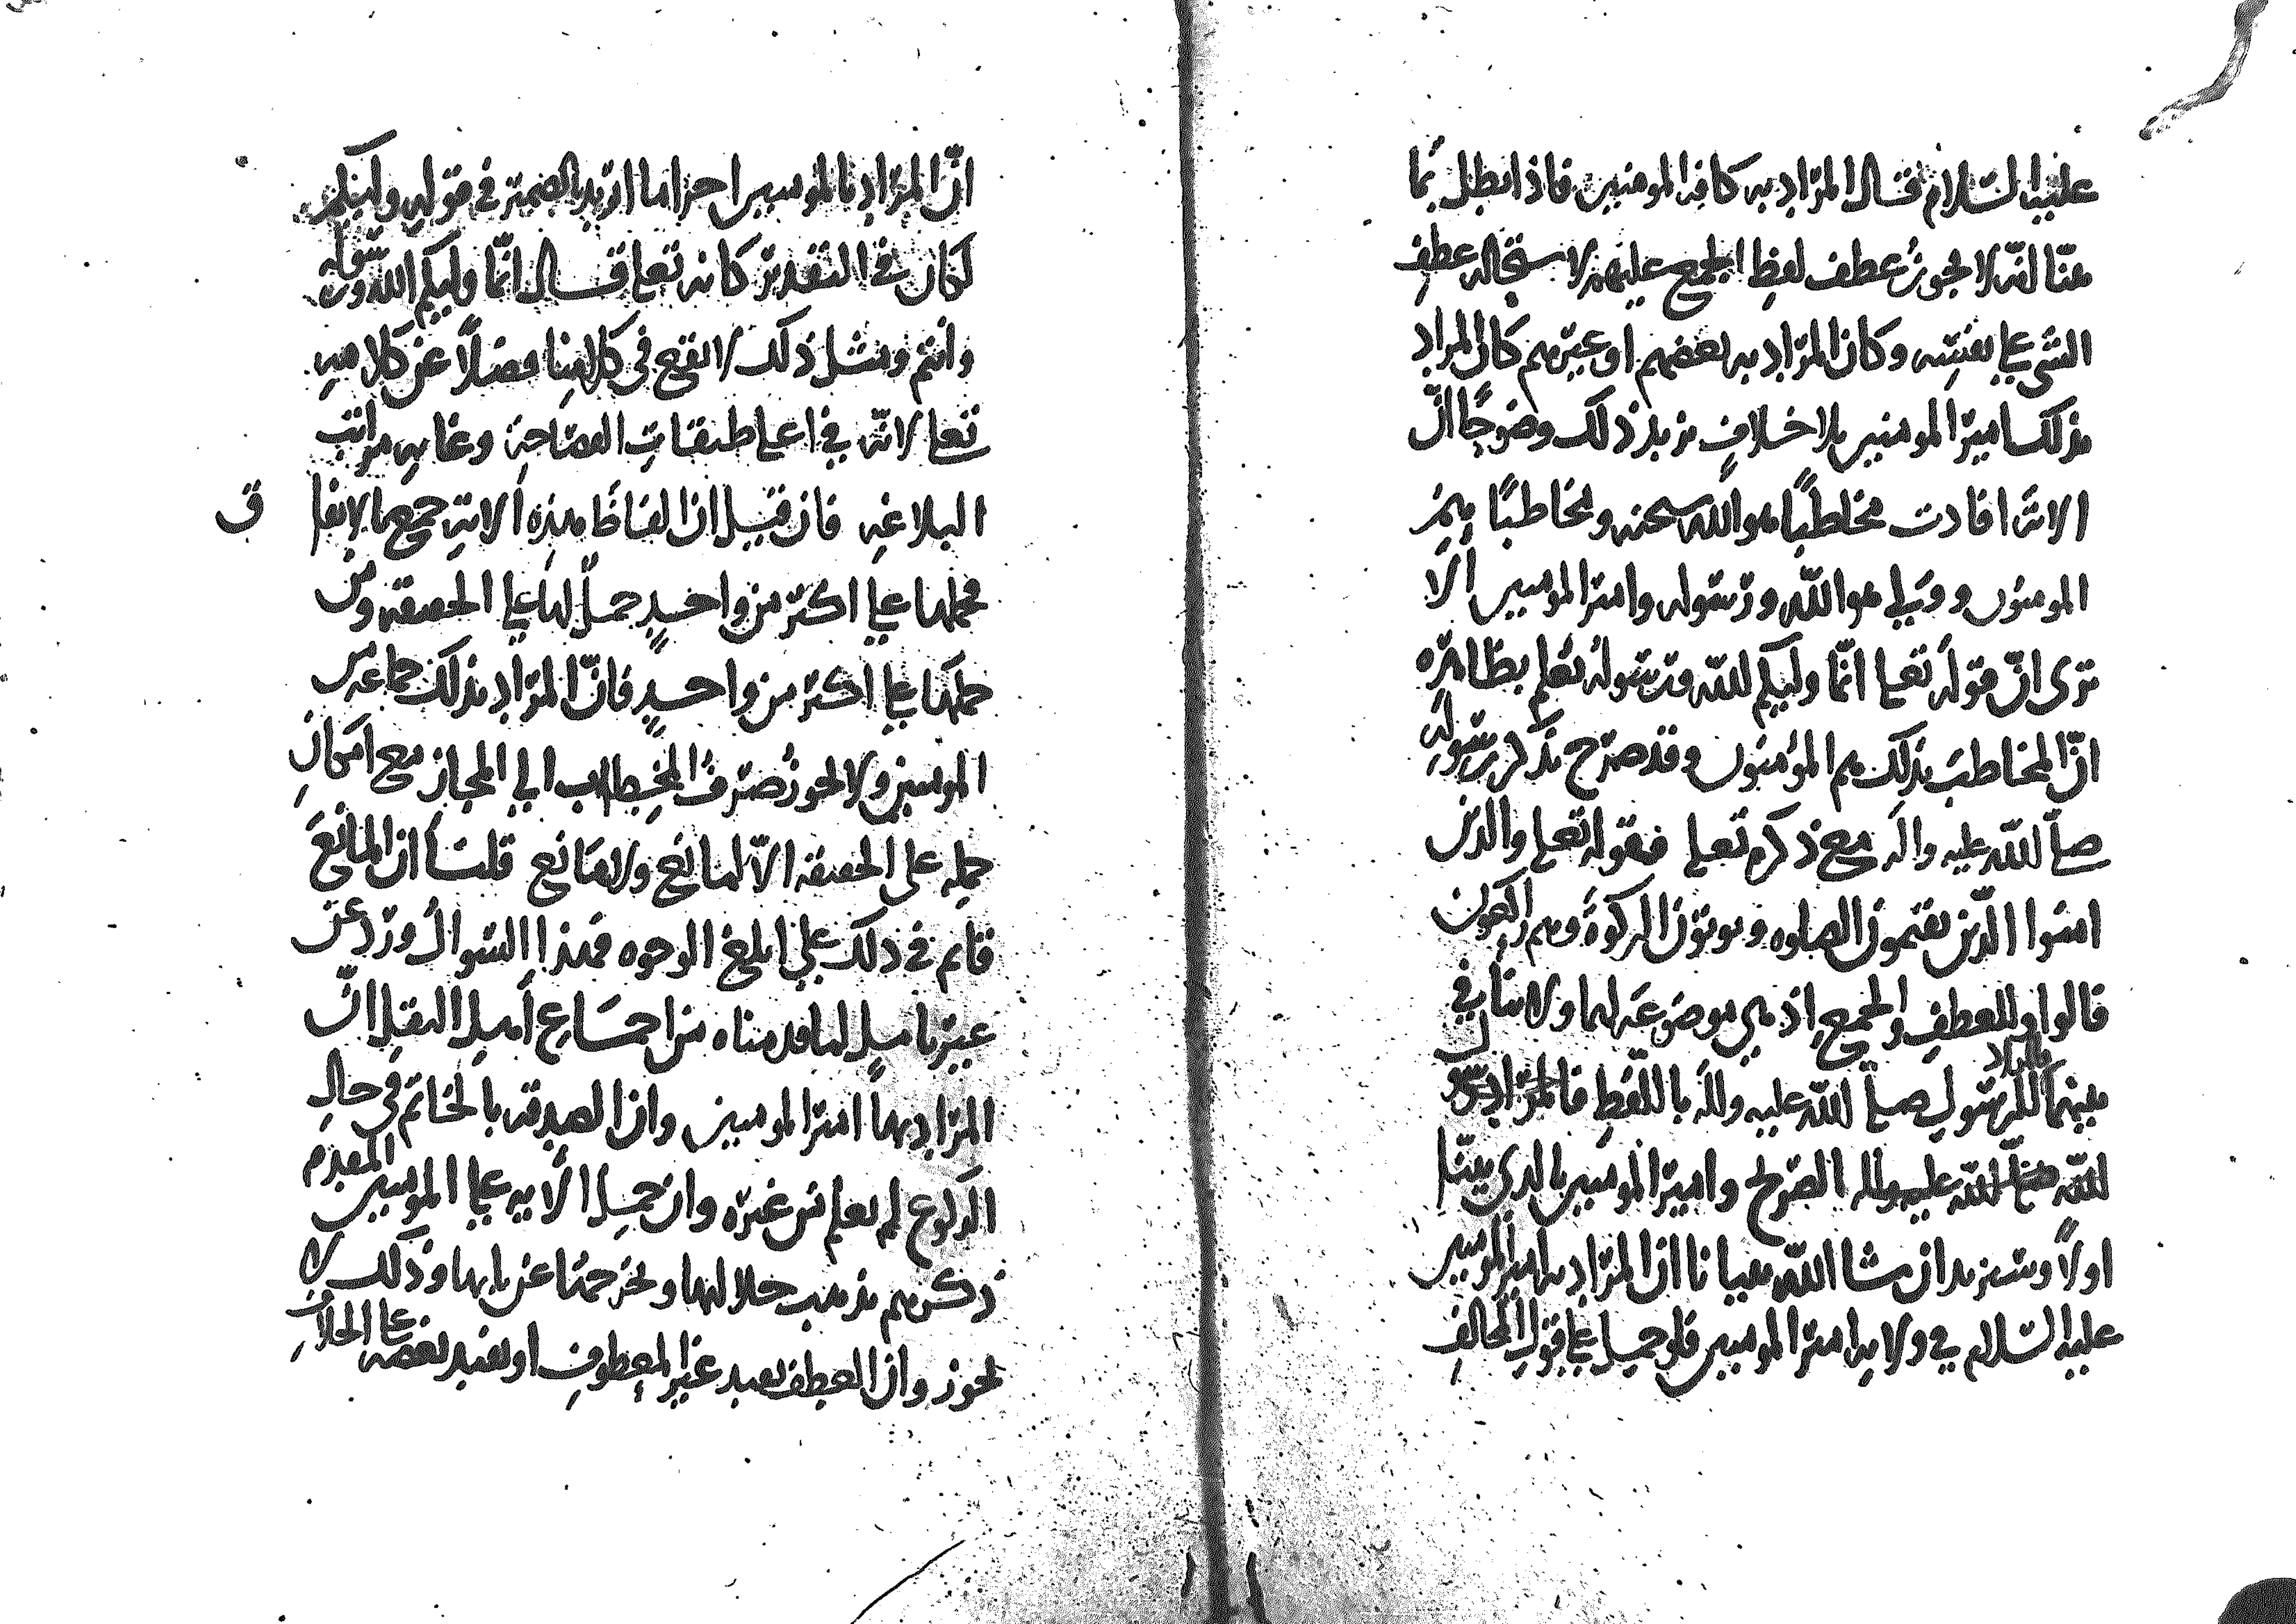 عليه السلام قال المراد به كافة المومنين فاذا بطل بما
بينا انه لا يجوز عطف لفظ الجمع عليهم لاستحاله عطف
الشي على نفسه وكان المراد به بعضهم او غيرهم كان المراد
بذلك امير المومنين بلا خلاف يزيد ذلك وضوحًا انّ
الاية افادت مخاطِبًا هو الله سبحنه ومخاطَبًا هم
المومنون ووليا هو الله ورسوله وامير المومنين الا
ترى انّ قوله تعلى انّما وليكم الله ورسوله نعلم بظاهره
انّ المخاطب بذلك هم المؤمنون وقد صرح بذكر رسوله
صلى الله عليه واله مع ذكره تعلى فقوله تعلى والذين
امنوا الّذين يقيمون الصلوه ويوتون الزكوة وهم راكعون
قالوا وللعطف والجمع اذ هي موضوعة لهما ولا تنافي
بينهما للرسول صلى الله عليه واله باللفظ فالمراد برسول
الله صلى الله عليه واله الصريح وامير المومنين بالذي بينّا
اولاً وسنزيد ان شا الله بيانا ان المراد به امير المومنين
عليه السلام في ولايه امير المومنين فلو حمل على قول المخالف
انّ المراد بالمومنين احرا ما اريد بالضمير في قوله وليكم
لكان في التقدير كانه تعلى قال انّما وليكم الله ورسوله
وانتم ومثل ذلك لا يقع في كلامنا فضلاً عن كلامه
تعلى لانّه في اعلى طبقات الفصاحة وغايه مراتب
البلاغه فان قيل ان الفاظ هذه الاية جمع الالفا
ق
فحملها على اكثر من واحدٍ حمل لها على الحقيقه ومن
حملها على اكثر من واحدٍ فانّ المراد بذلك جماعه من
المومنين ولا يجوز صرف الخطاب الى المجاز مع امكان
حمله على الحقيقه الاّ لمانع ولا مانع قلنا ان المانع
قائم في ذلك على ابلغ الوجوه فهذا السوال ورد عن
غير تامل لما قدمناه من اجماع أهل النقل انّ
المراد بها امير المومنين وان الصدقه بالخاتم في حال
الركوع لم يعلم من غيره وان حمل الاية على المومنين المقدم
ذكرهم يذهب جلالتها ويخرجها عن بابها وذلك لا
يجوز وان العطف يفيد غير المعطوف او يفيد بعضه على الخلاف